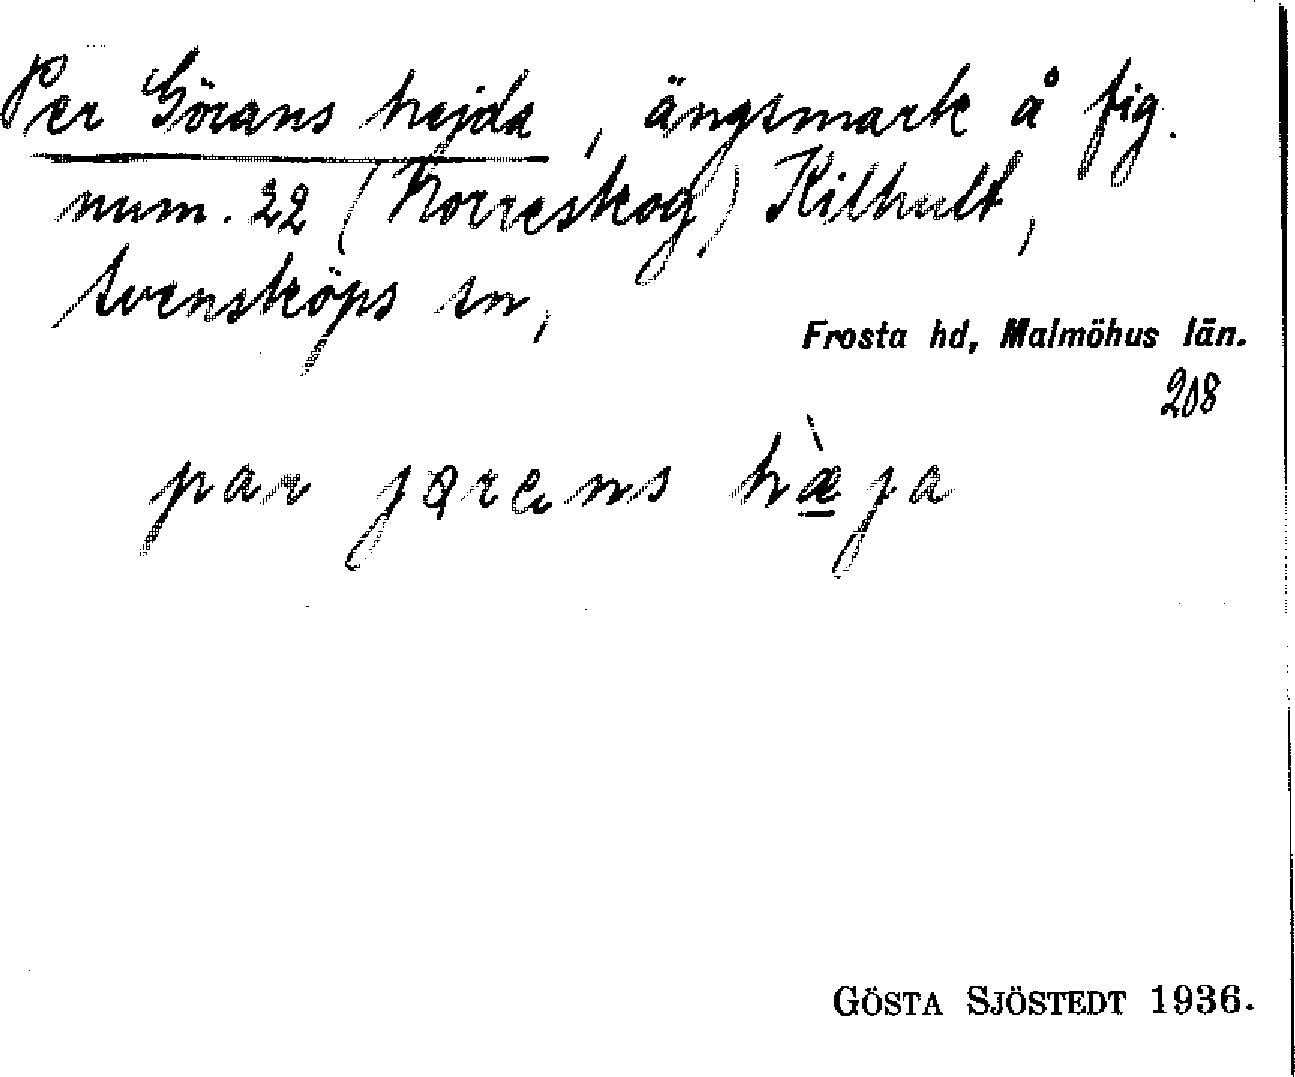 Per Görans hejda, ängsmark å fig.
num. 22 (Korreskog) Kilhult,
Svensköps sn,
Frosta hd, Malmöhus län.
208
par jørens hæ̀ja
GÖSTA SJÖSTEDT 1936.